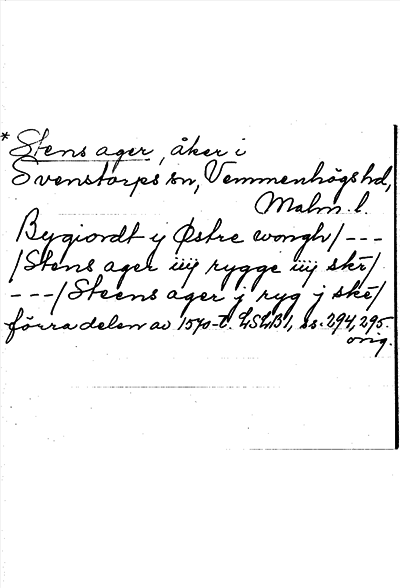 * Stens ager, åker i
Svenstorps sn, Vemmenhögs hd,
Malm. l.
Bygiordt y Østre wongh/---
/Stens ager iiij rygge iiij skē/
---/Steens ager j ryg j skē/
förra delen av 1570-t. LSLB1, ss. 294, 295.
orig.